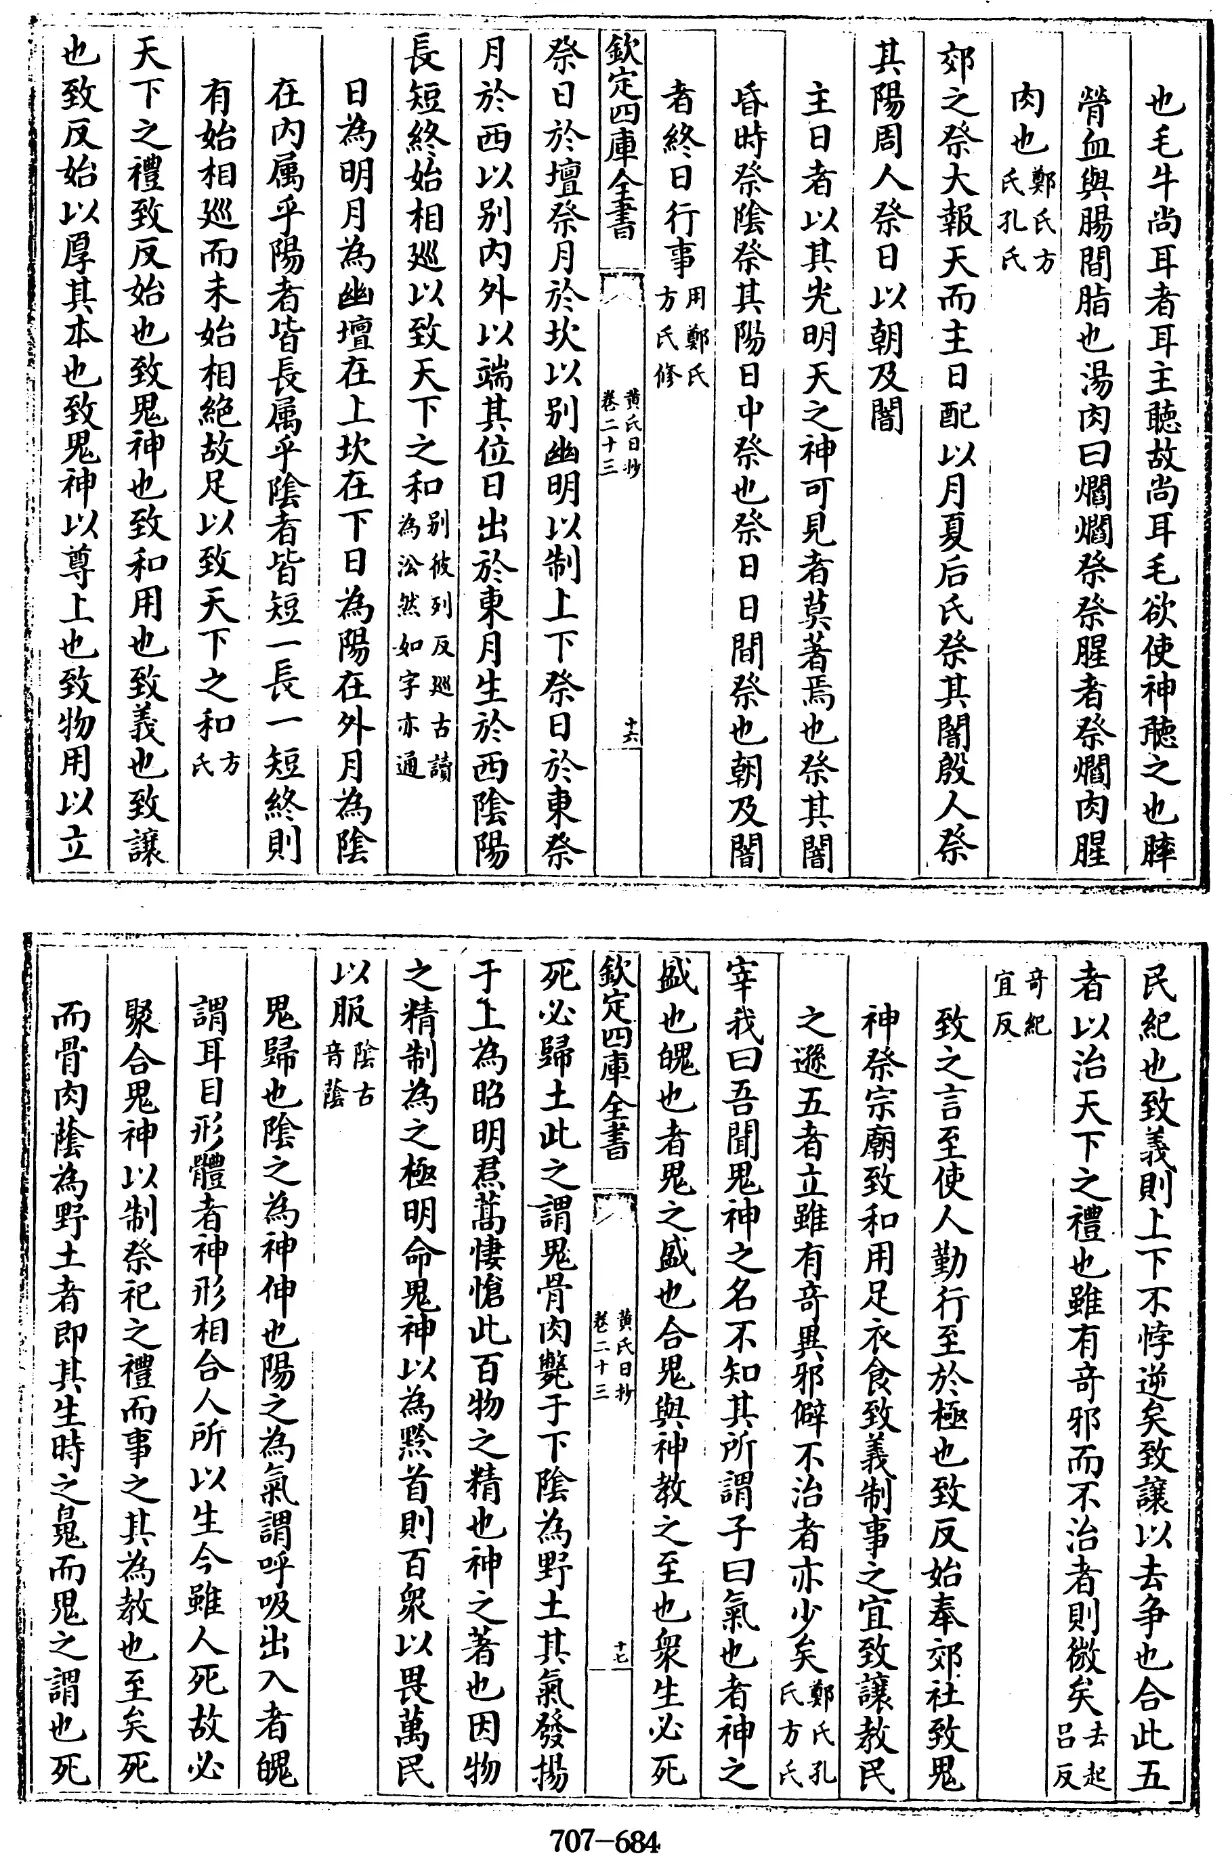 也毛牛尚耳者耳主聽故尚耳毛欲使神聽之也膟
膋血與腸間脂也湯肉曰爓爓祭祭腥者祭爓肉腥
肉也鄭氏方氏孔氏
郊之祭大報天而主日配以月夏后氏祭其闇殷人祭
其陽周人祭日以朝及闇
主日者以其光明天之神可見者莫著焉也祭其闇
昏時祭陰祭其陽日中祭也祭日日間祭也朝及闇
者終日行事用鄭氏方氏修
欽定四庫全書 黄氏日抄卷二十三 十六
祭日於壇祭月於坎以别幽明以制上下祭日於東祭
月於西以别内外以端其位日出於東月生於西陰陽
長短終始相廵以致天下之和别彼列反廵古讀為沿然如字亦通
日為明月為幽壇在上坎在下日為陽在外月為陰
在内属乎陽者皆長属乎陰者皆短一長一短終則
有始相廵而未始相絶故足以致天下之和方氏
天下之禮致反始也致鬼神也致和用也致義也致讓
也致反始以厚其本也致鬼神以尊上也致物用以立
民紀也致義則上下不悖逆矣致讓以去争也合此五
者以治天下之禮也雖有奇邪而不治者則微矣去起吕反
奇紀宜反
致之言至使人勤行至於極也致反始奉郊社致鬼
神祭宗廟致和用足衣食致義制事之宜致讓教民
之遜五者立雖有奇異邪僻不治者亦少矣鄭氏孔氏方氏
宰我曰吾聞鬼神之名不知其所謂子曰氣也者神之
盛也魄也者鬼之盛也合鬼與神教之至也衆生必死
欽定四庫全書 黄氏日抄卷二十三 十七
死必歸土此之謂鬼骨肉斃于下陰為野土其氣發揚
于上為昭明焄蒿悽愴此百物之精也神之著也因物
之精制為之極明命鬼神以為黔首則百衆以畏萬民
以服陰古音蔭
鬼歸也陰之為神伸也陽之為氣謂呼吸出入者魄
謂耳目形體者神形相合人所以生今雖人死故必
聚合鬼神以制祭祀之禮而事之其為教也至矣死
而骨肉蔭為野土者即其生時之魄而鬼之謂也死
707-684